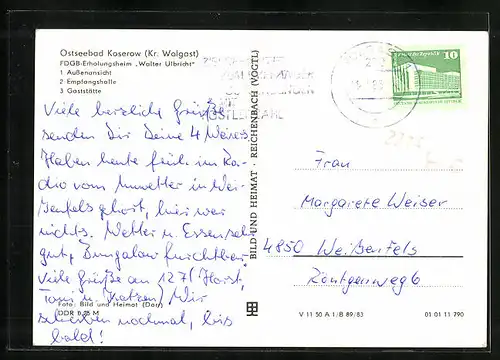 Ostseebad Koserow (Kr. Wolgast)
FDGB-Erholungsheim „Walter Ulbricht"
1 Außenansicht
2 Empfangshalle
3 Gaststätte
Viele herzliche Grüße
senden Dir Deine 4 Weisers
Haben heute früh im Ra-
dio vom Unwetter in Wei-
ßenfels gehört, hier war
nichts. Wetter u. Essen sehr
gut, Bungalow furchtbar
Viele Grüße an 127 (Horst,
u. Katzen) Wir
schreiben nochmal, bis
bald!
Foto: Bild und Heimat (Darr)
DDR 0,25 M
BILD UND HEIMAT · REICHENBACH (VOGTL)
10
Frau
Margarete Weiser
4850 Weißenfels
Röntgenweg 6
V 11 50 A 1/B 89/83
01 01 11 790